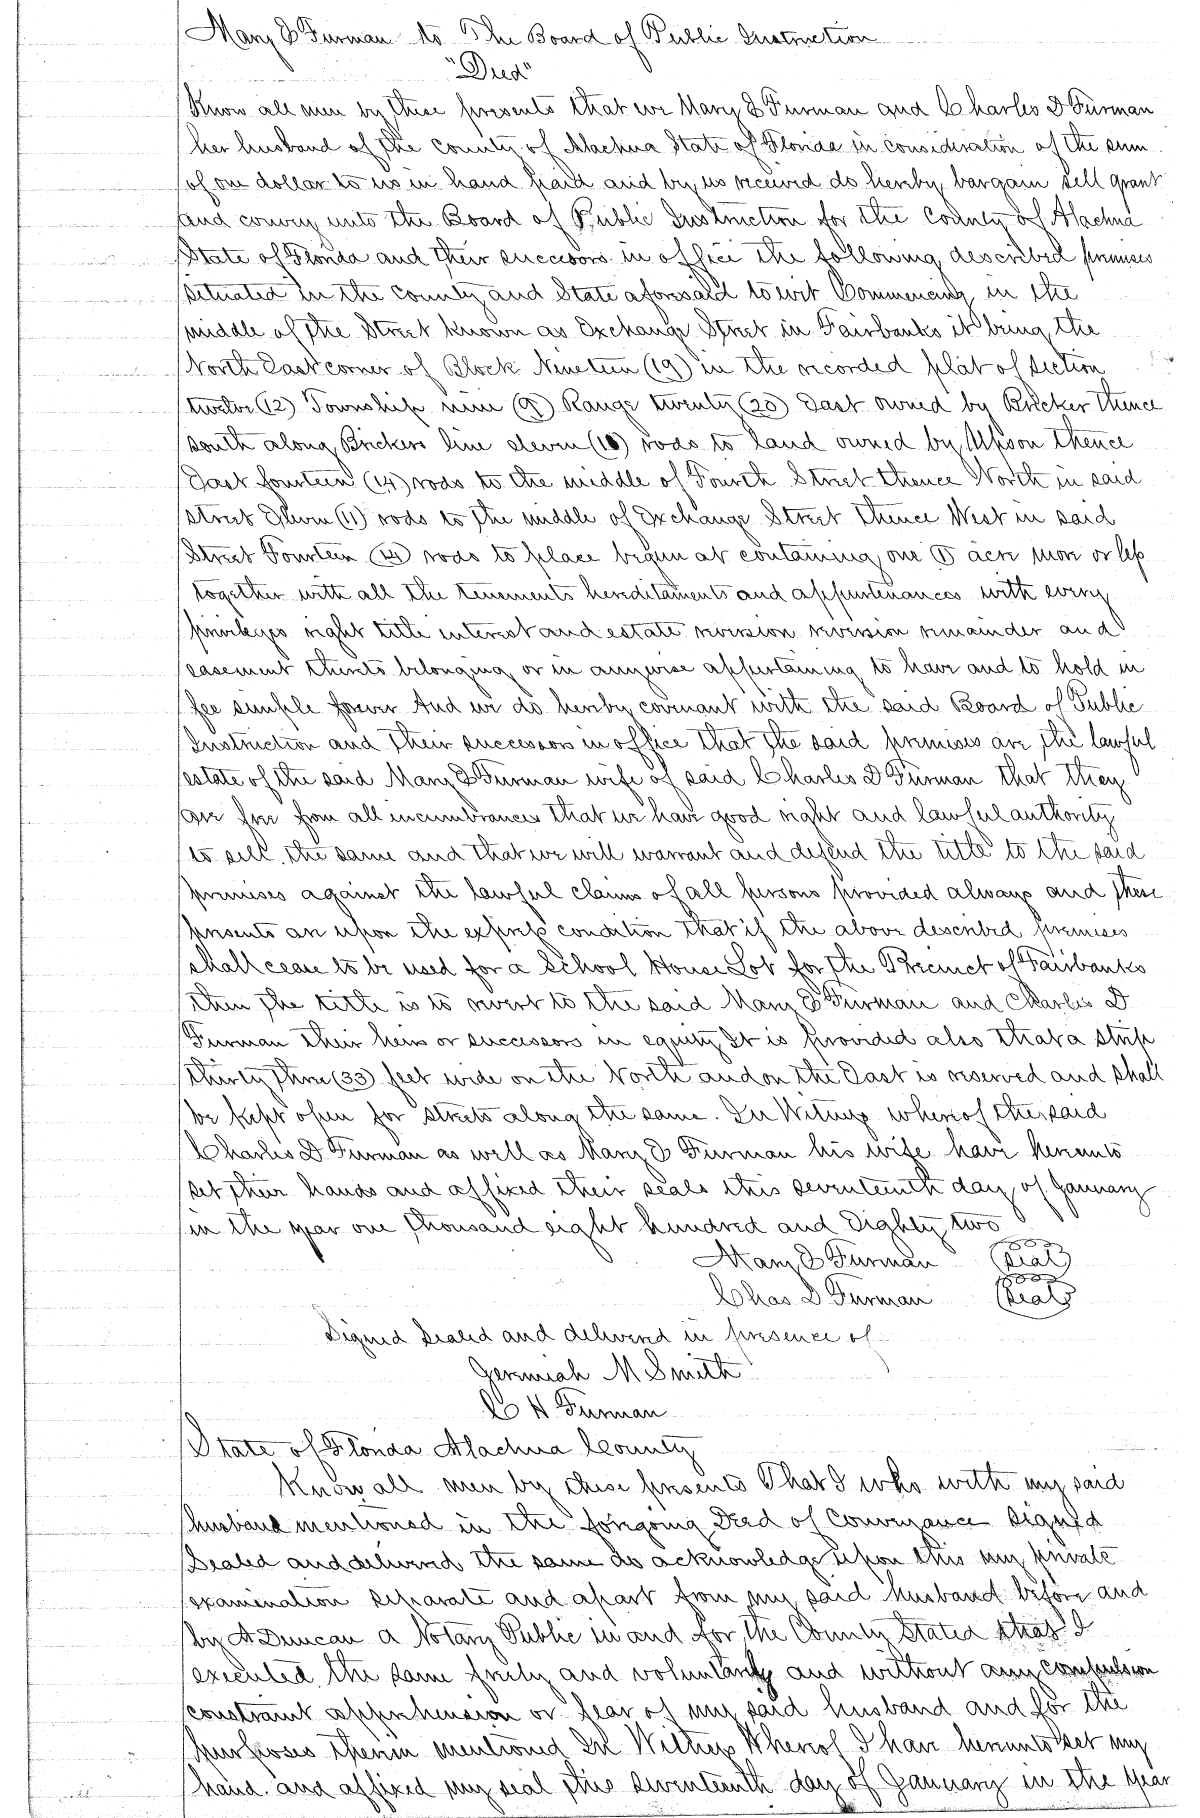 Mary E Furman to The Board of Public Instruction
"Deed"
Know all men by these presents that we Mary E Furman and Charles D Furman
her husband of the County of Alachua State of Florida in consideration of the sum
of one dollar to us in hand paid and by us received do hereby bargain sell grant
and convey unto the Board of Public Instruction for the County of Alachua
State of Florida and their successors in office the following described premises
situated in the county and State aforesaid to wit Commencing in the
middle of the Street known as Exchange Street in Fairbanks it being the
North East corner of Block Nineteen (19) in the recorded plat of section
twelve (12) Township nine (9) Range twenty (20) East owned by Bricker thence
south along Brickers line eleven (11) rods to land owned by Upson thence
East fourteen (14) rods to the middle of Fourth Street thence North in said
street Eleven (11) rods to the middle of Exchange Street thence West in said
Street Fourteen (14) rods to place begun at containing one (1) acre more or less
together with all the tenements hereditaments and appurtenances with every
privileges right title interest and estate reversion reversion remainder and
easement thereto belonging or in anywise appertaining to have and to hold in
fee simple forever And we do hereby covenant with the said Board of Public
Instruction and their successors in office that the said premises are the lawful
estate of the said Mary E Furman wife of said Charles D Furman that they
are free from all incumbrances that we have good right and lawful authority
to sell the same and that we will warrant and defend the title to the said
premises against the lawful claims of all persons provided always and these
presents are upon the express condition that if the above described premises
shall cease to be used for a School House Lot for the Precinct of Fairbanks
then the title is to revert to the said Mary E Furman and Charles D
Furman their heirs or successors in equity It is provided also that a strip
thirty three (33) feet wide on the North and on the East is reserved and shall
be kept open for streets along the same. In Witness whereof the said
Charles D Furman as well as Mary E Furman his wife have hereunto
set their hands and affixed their seals this seventeenth day of January
in the year one thousand eight hundred and Eighty two
Mary E Furman (Seal)
Chas D Furman (Seal)
Signed Sealed and delivered in presence of
Jeremiah M Smith
C H Furman
State of Florida Alachua County
Know all men by these presents That I who with my said
husband mentioned in the foregoing Deed of Conveyance signed
Sealed and delivered the same do acknowledge upon this my private
examination separate and apart from my said husband before and
by A Duncan a Notary Public in and for the County Stated that I
executed the same freely and voluntarily and without any compulsion
constraint apprehension or fear of my said husband and for the
purposes therein mentioned In Witness Whereof I have hereunto set my
hand and affixed my seal this seventeenth day of January in the year